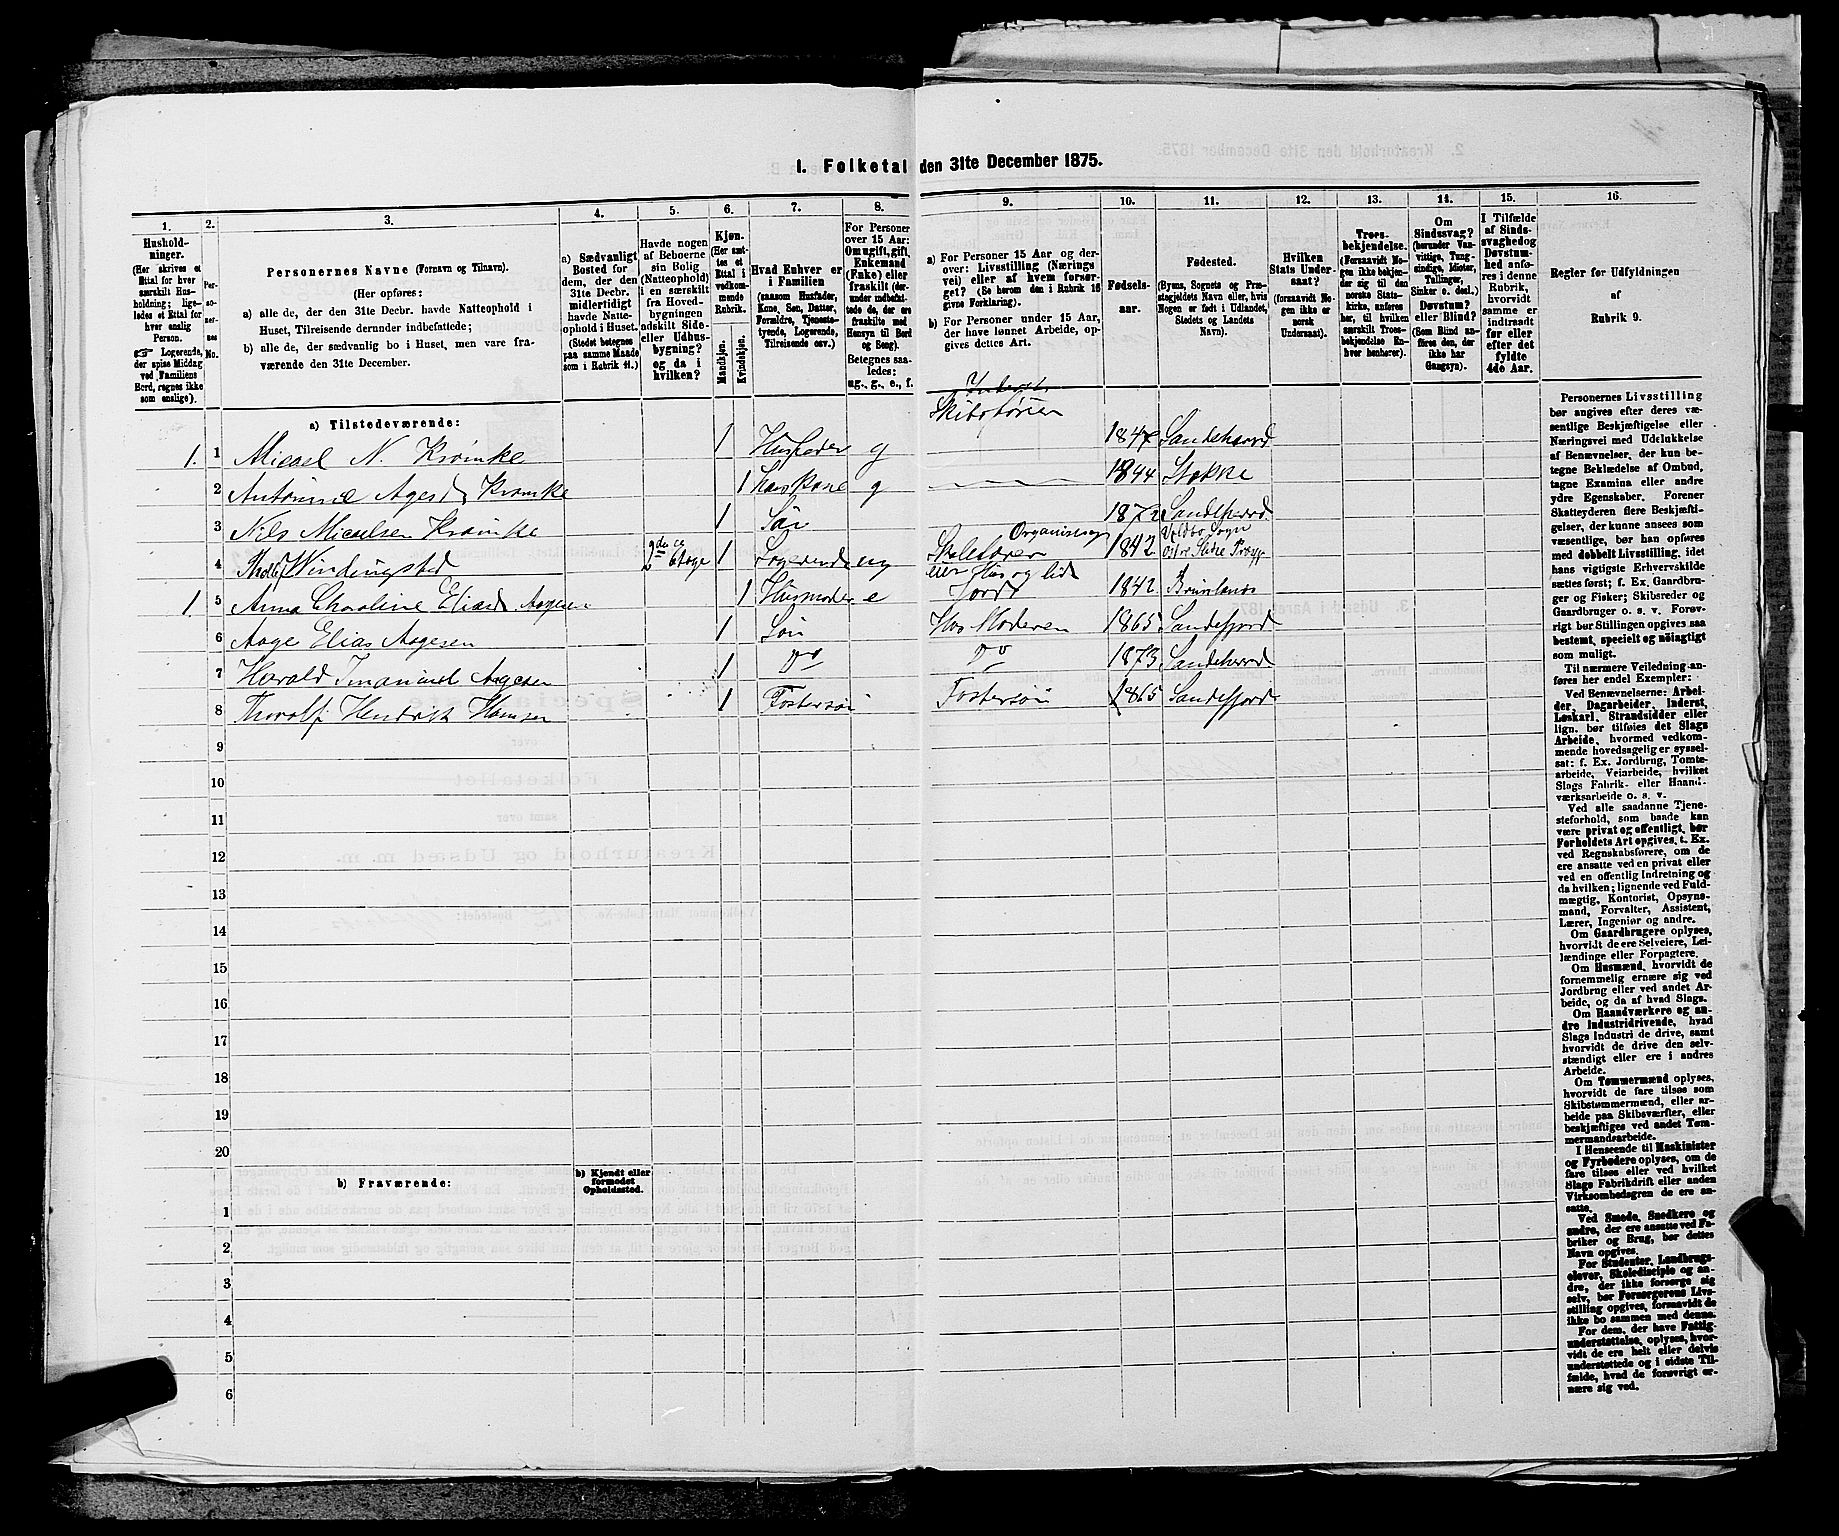 1. Folketal den 31te December 1875.
1.
2.
3.
4.
5.
6.
7.
8.
9.
10.
11.
12.
13.
14.
15.
16.
Hushold-
ninger.
(Her skrives et
Ettal for hver
særskilt Hus-
holdning; lige-
ledes et Ettal for
hver enslig
Person.
☞ Logerende,
der spise Middag
ved Familiens
Bord, regnes ikke
som enslige).
Per-
so-
ner-
nes
No.
Personernes Navne (Fornavn og Tilnavn).
(Her opføres:
a) alle de, der den 31te Decbr. havde Natteophold i
Huset, Tilreisende derunder indbefattede;
b) alle de, der sædvanlig bo i Huset, men vare fra-
værende den 31te December.
a) Sædvanligt
Bosted for
dem, der den
31te Decbr.
midlertidigt
havde Natte-
ophold i Huset.
(Stedet betegnes
paa samme Maade
som i Rubrik 11.)
Havde nogen
af Beboerne
sin Bolig
(Natteophold)
i en særskilt
fra Hoved-
bygningen
adskilt Side-
eller Udhus-
bygning?
og da i
hvilken?
Kjøn.
(Her sæt-
tes et
Ettal i
vedkom-
mende
Rubrik.
Mandkjøn.
Kvindekjøn.
Hvad Enhver er
i Familien
(saasom Husfader,
Kone, Søn, Datter,
Forældre, Tjeneste-
tyende, Logerende,
Tilreisende osv.)
For Personer
over 15 Aar:
Om ugift, gift,
Enkemand
(Enke) eller
fraskilt (der-
under indbefat-
tede de, der ere
fraskilte med
Hensyn til Bord
og Seng).
Betegnes saa-
ledes:
ug., g., e., f.
a) For Personer 15 Aar og der-
over: Livsstilling (Nærings-
vei) eller af hvem forsør-
get? (Se herom den i Rubrik 16
givne Forklaring).
b) For Personer under 15 Aar,
der have lønnet Arbeide, op-
gives dettes Art.
Fødsels-
aar.
Fødested.
(Byens, Sognets og Præ-
stegjeldets Navn eller, hvis
Nogen er født i Udlandet,
Stedets og Landets
Navn).
Hvilken
Stats Under-
saat?
(foraavidt No-
gen ikke er
norsk
Undersaat).
Troes-
bekjendelse.
(Forsaavidt No-
gen ikke bekjen-
der sig til den
norske Stats-
kirke, anføres
her, til hvilken
særskilt Troes-
bekjendelse En-
hver henhører).
Om
Sindssvag?
(herunder Van-
vittige, Tung-
sindige, Idioter,
Tullinger,
Sinker o. desl.)
Døvstum?
eller Blind?
(Som Blind an-
føres den, der
ikke har
Gangsyn).
I Tilfælde
af Sinds-
svaghed og
Døvstum-
hed anfø-
res i denne
Rubrik,
hvorvidt
samme er
indtraadt
før eller
efter det
fyldte
4de Aar.
Regler for Udfyldningen
af
Rubrik 9.
a) Tilstedeværende:
Skibstørien
1. 1 Micael N. Krømke 1 Husfader g 1847 Sandeherred
2 Antonine Agesd Krømke 1 hans Kone g 1844 Stokke
3 Nils Micaelsen Krømke 1 Søn 1872 Sandeherred
4 Windingstad 2den Etage 1 Logerende ug Skolelærer Organist og 1842 Sogn Østre Slidre Præg
eier Hus og lidt
1. 5 Anna Charoline Eliasd Aagesen 1 Husmoder e Jord 1842 Brunlanæs
6 Aage Elias Aagesen 1 Søn Hos Moderen 1865 Sandefjord
7 Harald Imanuel Aagesen 1 Do Do 1873 Sandeherred
8 Thoralf Hendrik Hansen 1 Fostersøn Fostersøn 1865 Sandefjord
9
10
11
12
13
14
15
16
17
18
19
20
b) Fraværende:
b) Kjendt eller
formodet
Opholdssted.
1
2
3
4
5
6
Personernes Livsstilling
bør angives efter deres væ-
sentlige Beskjæftigelse eller
Næringsvei med Udelukkelse
af Benævnelser, der kun be-
tegne Beklædelse af Ombud,
tagne Examina eller andre
ydre Egenskaber. Forener
Skatteyderen flere Beskjæfti-
gelser, der kunne ansees som
væsentlige, bør han opføres
med dobbelt Livsstilling, idet
hans vigtigste Erhvervskilde
sættes først; f. Ex. Gaardbru-
ger og Fisker; Skibsreder og
Gaardbruger o. s. v. Forøv-
rigt bør Stillingen opgives saa
bestemt, specielt og nøiagtigt
som muligt.
Til nærmere Veiledning an-
føres her endel Exempler:
Ved Benævnelserne: Arbei-
der, Dagarbeider, Inderst,
Løskarl, Strandsidder eller
lign. bør tilføies det Slags
Arbeide, hvormed vedkom-
mende hovedsagelig er syssel-
sat: f. Ex. Jordbrug, Tomte-
arbeide, Veiarbeide, hvilket
Slags Fabrik- eller Haand-
værksarbeide o. s. v.
Ved alle saadanne Tjene-
steforhold, som baade kan
være privat og offentligt, bør
Forholdets Art opgives, t. Ex.
ved Regnskabsførere, om de
ere ansatte ved en privat eller
ved en offentlig Indretning og
da hvilken; lignende ved Fuld-
mægtig, Kontorist, Opsyns-
mand, Forvalter, Assistent,
Lærer, Ingeniør og andre.
Om Gaardbrugere oplyses,
hvorvidt de ere Selveiere, Lei-
lændinge eller Forpagtere.
Om Husmænd, hvorvidt de
fornemmelig ernære sig ved
Jordbrug eller ved andet Ar-
beide, og da af hvad Slags.
Om Haandværkere og an-
dre Industridrivende, hvad
Slags Industri de drive, samt
hvorvidt de drive den selv-
stændigt eller ere i andres
Arbeide.
Om Tømmermænd oplyses,
hvorvidt de fare tilsøs som
Skibstømmermænd, eller ar-
beide paa Skibsværfter, eller
beskjæftiges ved andet Tøm-
mermandsarbeide.
I Henseende til Maskinister
og Fyrbødere oplyses, om de
fare tilsøs eller ved hvilket
Slags Fabrikdrift eller anden
Virksomhedsgren de ere an-
satte.
Ved Smede, Snedkere og
andre, der ere ansatte ved Fa-
briker og Brug, bør dettes
Navn opgives.
For Studenter, Landbrugs-
elever, Skoledisciple og an-
dre, der ikke forsørge sig
selv, bør Forsørgerens Livs-
stilling opgives, forsaavidt de
ikke bo sammen med denne.
For dem, der have Fattig-
understøttelse, oplyses, hvor-
vidt de ere helt eller delvis
understøttede og i sidste Til-
fælde, hvad de forøvrigt er-
nære sig ved.